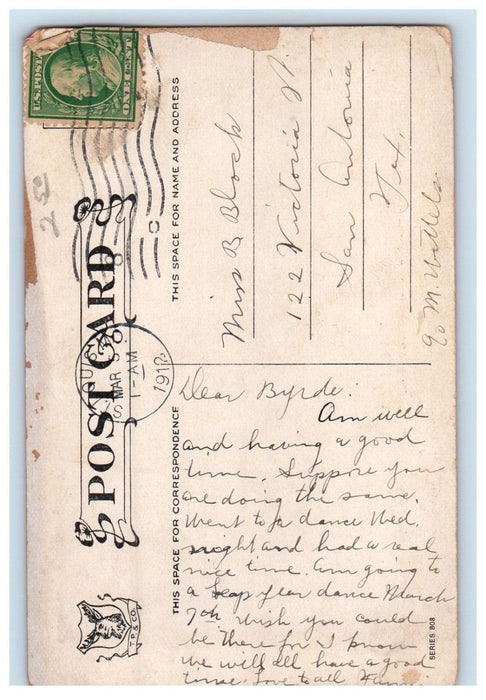 U.S. POST
ONE
POST CARD
MAR 9
1-AM
1912
THIS SPACE FOR NAME AND ADDRESS
Miss B Block
122 Victoria St.
San Antonia
Tex.
c/o M.
THIS SPACE FOR CORRESPONDENCE
Dear Byrde:
Am well
and having a good
time. Suppose you
are doing the same.
Went to a dance Wed.
night and had a real
nice time. Am going to
a Leap year dance March
9th wish you could
be there for I know
we will all have a good
time. Love to all
T.P. & CO.
SERIES 808